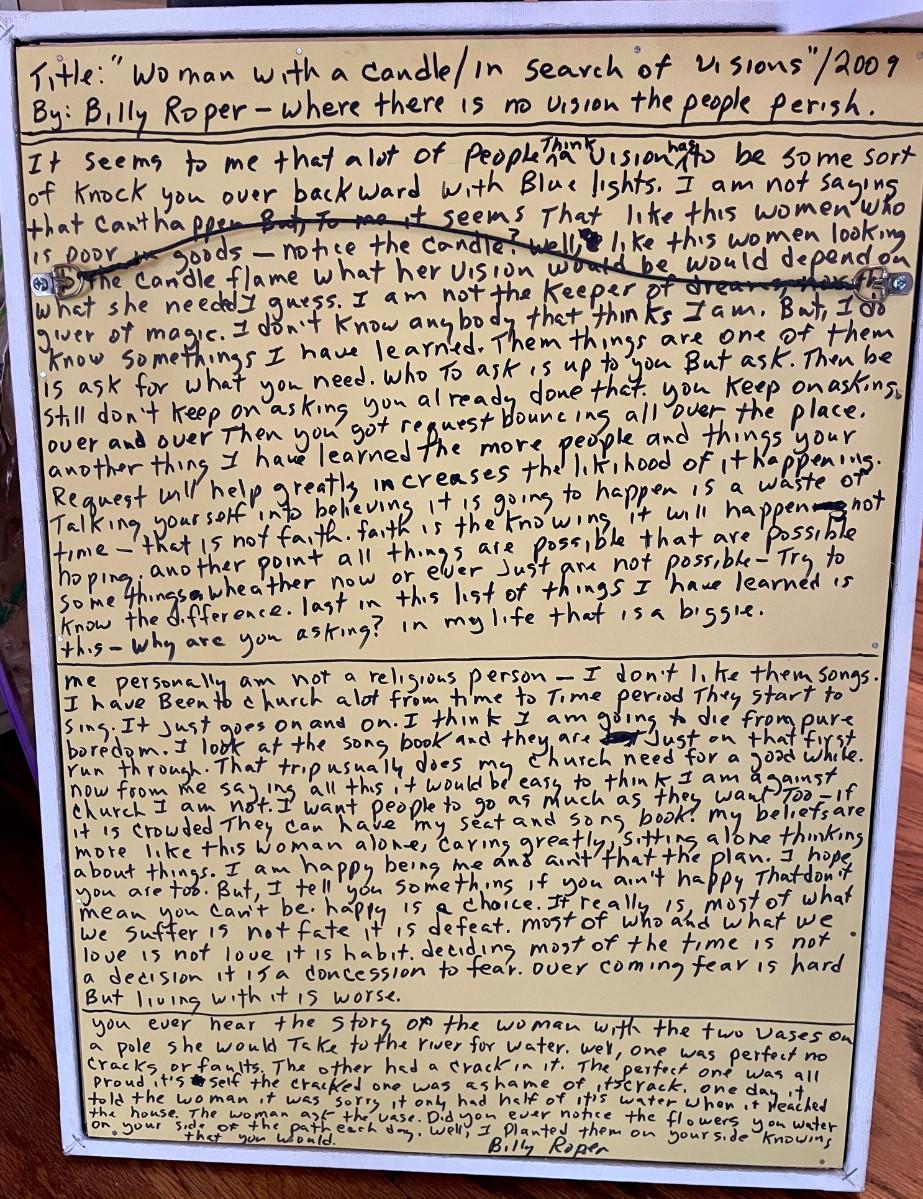 Title: "Woman with a candle/in search of visions"/2009
By: Billy Roper - where there is no vision the people perish.
It seems to me that alot of people Think a vision has to be some sort
of knock you over backward with Blue lights. I am not saying
that cant happen But, To me it seems That like this women who
is poor in goods - notice the candle? Well, like this women looking
the candle flame what her vision would be would depend on
what she needed I guess. I am not the keeper of dreams
giver of magic. I don't know anybody that thinks I am. But, I do
know somethings I have learned. Them things are one of them
is ask for what you need. who To ask is up to you But ask. Then be
still don't keep on asking you already done that. you keep on asking
over and over Then you got request bouncing all over the place.
another thing I have learned the more people and things your
Request will help greatly increases the likihood of it happening.
Talking yourself into believing it is going to happen is a waste of
time - that is not faith. faith is the knowing it will happen not
hoping. another point all things are possible that are possible
some things wheather now or ever Just are not possible - Try to
know the difference. last in this list of things I have learned is
this - Why are you asking? in my life that is a biggie.
me personally am not a religious person - I don't like them songs.
I have Been to church alot from time to Time period They start to
sing. It Just goes on and on. I think I am going to die from pure
boredom. I look at the song book and they are Just on that first
run through. That trip usually does my church need for a good while.
now from me saying all this it would be easy to think I am against
church I am not. I want people to go as much as they want Too - if
it is crowded They can have my seat and song book. my beliefs are
more like this woman alone, caring greatly, sitting alone thinking
about things. I am happy being me and ain't that the plan. I hope
you are too. But, I tell you something if you ain't happy That don't
mean you can't be. happy is a choice. It really is, most of what
we suffer is not fate it is defeat. most of who and what we
love is not love it is habit. deciding most of the time is not
a decision it is a concession to fear. over coming fear is hard
But living with it is worse.
you ever hear the story of the woman with the two vases on
a pole she would Take to the river for water. well, one was perfect no
cracks or faults. The other had a crack in it. The perfect one was all
proud it's self the cracked one was ashame of its crack. one day it
told the woman it was sorry it only had half of it's water when it reached
the house. The woman ask the vase. Did you ever notice the flowers you water
on your side of the path each day. Well, I planted them on your side knowing
that you would.
Billy Roper